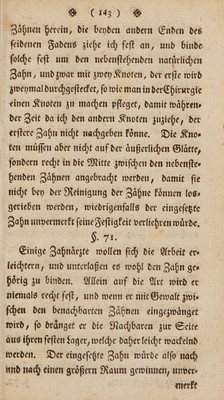 ( 143 )
Zähnen herein, die beyden andern Enden des
seidenen Fadens ziehe ich fest an, und binde
solche fest um den nebenstehenden natürlichen
Zahn, und zwar mit zwey Knoten, der erste wird
zweymal durchgestecket, so wie man in der Chirurgie
einen Knoten zu machen pfleget, damit währen-
der Zeit da ich den andern Knoten zuziehe, der
erstere Zahn nicht nachgeben könne. Die Kno-
ten müssen aber nicht auf der äußerlichen Glätte,
sondern recht in die Mitte zwischen den nebenste-
henden Zähnen angebracht werden, damit sie
nicht bey der Reinigung der Zähne können los-
gerieben werden, wiedrigenfalls der eingesetzte
Zahn unvermerkt seine Festigkeit verliehren würde.
§. 71.
Einige Zahnärzte wollen sich die Arbeit er-
leichtern, und unterlaßen es wohl den Zahn ge-
hörig zu binden. Allein auf die Art wird er
niemals recht fest, und wenn er mit Gewalt zwi-
schen den benachbarten Zähnen eingezwänget
wird, so dränget er die Nachbaren zur Seite
aus ihren festen Lager, welche daher leicht wackelnd
werden. Der eingesetzte Zahn würde also nach
und nach einen größern Raum gewinnen, unver-
merkt